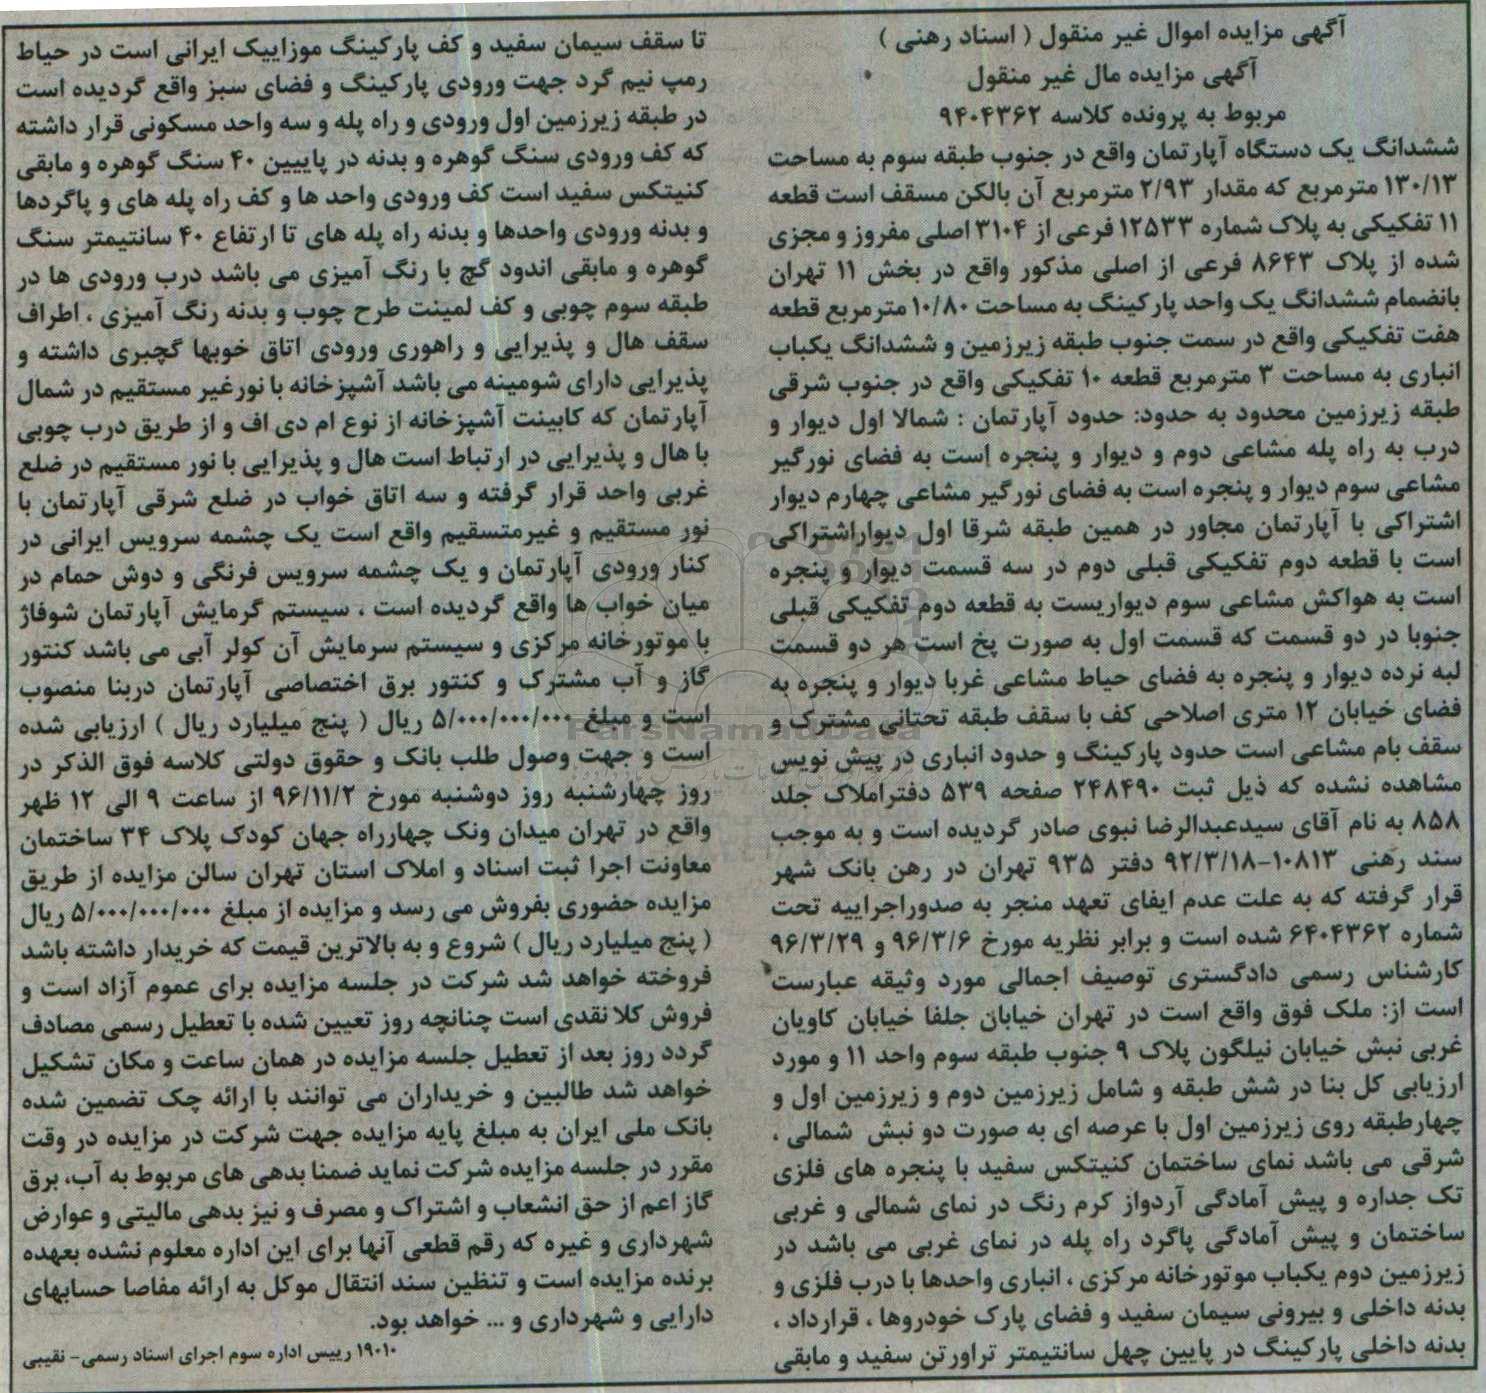 آگهی مزایده اموال غیر منقول ( اسناد رهنی )
آگهی مزایده مال غیر منقول
مربوط به پرونده کلاسه ۹۴۰۴۳۶۲
ششدانگ یک دستگاه آپارتمان واقع در جنوب طبقه سوم به مساحت
۱۳۰/۱۳ مترمربع که مقدار ۲/۹۳ مترمربع آن بالکن مسقف است قطعه
۱۱ تفکیکی به پلاک شماره ۱۲۵۳۳ فرعی از ۳۱۰۴ اصلی مفروز و مجزی
شده از پلاک ۸۶۴۳ فرعی از اصلی مذکور واقع در بخش ۱۱ تهران
بانضمام ششدانگ یک واحد پارکینگ به مساحت ۱۰/۸۰ مترمربع قطعه
هفت تفکیکی واقع در سمت جنوب طبقه زیرزمین و ششدانگ یکباب
انباری به مساحت ۳ مترمربع قطعه ۱۰ تفکیکی واقع در جنوب شرقی
طبقه زیرزمین محدود به حدود: حدود آپارتمان : شمالا اول دیوار و
درب به راه پله مشاعی دوم و دیوار و پنجره است به فضای نورگیر
مشاعی سوم دیوار و پنجره است به فضای نورگیر مشاعی چهارم دیوار
اشتراکی با آپارتمان مجاور در همین طبقه شرقا اول دیواراشتراکی
است با قطعه دوم تفکیکی قبلی دوم در سه قسمت دیوار و پنجره
است به هواکش مشاعی سوم دیواریست به قطعه دوم تفکیکی قبلی
جنوبا در دو قسمت که قسمت اول به صورت پخ است هر دو قسمت
لبه نرده دیوار و پنجره به فضای حیاط مشاعی غربا دیوار و پنجره به
فضای خیابان ۱۲ متری اصلاحی کف با سقف طبقه تحتانی مشترک و
سقف بام مشاعی است حدود پارکینگ و حدود انباری در پیش نویس
مشاهده نشده که ذیل ثبت ۲۴۸۴۹۰ صفحه ۵۳۹ دفتراملاک جلد
۸۵۸ به نام آقای سیدعبدالرضا نبوی صادر گردیده است و به موجب
سند رهنی ۱۰۸۱۳-۹۲/۳/۱۸ دفتر ۹۳۵ تهران در رهن بانک شهر
قرار گرفته که به علت عدم ایفای تعهد منجر به صدوراجراییه تحت
شماره ۶۴۰۴۳۶۲ شده است و برابر نظریه مورخ ۹۶/۳/۶ و ۹۶/۳/۲۹
کارشناس رسمی دادگستری توصیف اجمالی مورد وثیقه عبارست
است از: ملک فوق واقع است در تهران خیابان جلفا خیابان کاویان
غربی نبش خیابان نیلگون پلاک ۹ جنوب طبقه سوم واحد ۱۱ و مورد
ارزیابی کل بنا در شش طبقه و شامل زیرزمین دوم و زیرزمین اول و
چهارطبقه روی زیرزمین اول با عرصه ای به صورت دو نبش شمالی ،
شرقی می باشد نمای ساختمان کنیتکس سفید با پنجره های فلزی
تک جداره و پیش آمادگی آردواز کرم رنگ در نمای شمالی و غربی
ساختمان و پیش آمادگی پاگرد راه پله در نمای غربی می باشد در
زیرزمین دوم یکباب موتورخانه مرکزی ، انباری واحدها با درب فلزی و
بدنه داخلی و بیرونی سیمان سفید و فضای پارک خودروها ، قرارداد ،
بدنه داخلی پارکینگ در پایین چهل سانتیمتر تراورتن سفید و مابقی
تا سقف سیمان سفید و کف پارکینگ موزاییک ایرانی است در حیاط
رمپ نیم گرد جهت ورودی پارکینگ و فضای سبز واقع گردیده است
در طبقه زیرزمین اول ورودی و راه پله و سه واحد مسکونی قرار داشته
که کف ورودی سنگ گوهره و بدنه در پاییین ۴۰ سنگ گوهره و مابقی
کنیتکس سفید است کف ورودی واحد ها و کف راه پله های و پاگردها
و بدنه ورودی واحدها و بدنه راه پله های تا ارتفاع ۴۰ سانتیمتر سنگ
گوهره و مابقی اندود گچ با رنگ آمیزی می باشد درب ورودی ها در
طبقه سوم چوبی و کف لمینت طرح چوب و بدنه رنگ آمیزی ، اطراف
سقف هال و پذیرایی و راهوری ورودی اتاق خوبها گچبری داشته و
پذیرایی دارای شومینه می باشد آشپزخانه با نورغیر مستقیم در شمال
آپارتمان که کابینت آشپزخانه از نوع ام دی اف و از طریق درب چوبی
با هال و پذیرایی در ارتباط است هال و پذیرایی با نور مستقیم در ضلع
غربی واحد قرار گرفته و سه اتاق خواب در ضلع شرقی آپارتمان با
نور مستقیم و غیرمتسقیم واقع است یک چشمه سرویس ایرانی در
کنار ورودی آپارتمان و یک چشمه سرویس فرنگی و دوش حمام در
میان خواب ها واقع گردیده است ، سیستم گرمایش آپارتمان شوفاژ
با موتورخانه مرکزی و سیستم سرمایش آن کولر آبی می باشد کنتور
گاز و آب مشترک و کنتور برق اختصاصی آپارتمان دربنا منصوب
است و مبلغ ۵/۰۰۰/۰۰۰/۰۰۰ ریال ( پنج میلیارد ریال ) ارزیابی شده
است و جهت وصول طلب بانک و حقوق دولتی کلاسه فوق الذکر در
روز چهارشنبه روز دوشنبه مورخ ۹۶/۱۱/۲ از ساعت ۹ الی ۱۲ ظهر
واقع در تهران میدان ونک چهارراه جهان کودک پلاک ۳۴ ساختمان
معاونت اجرا ثبت اسناد و املاک استان تهران سالن مزایده از طریق
مزایده حضوری بفروش می رسد و مزایده از مبلغ ۵/۰۰۰/۰۰۰/۰۰۰ ریال
( پنج میلیارد ریال ) شروع و به بالاترین قیمت که خریدار داشته باشد
فروخته خواهد شد شرکت در جلسه مزایده برای عموم آزاد است و
فروش کلا نقدی است چنانچه روز تعیین شده با تعطیل رسمی مصادف
گردد روز بعد از تعطیل جلسه مزایده در همان ساعت و مکان تشکیل
خواهد شد طالبین و خریداران می توانند با ارائه چک تضمین شده
بانک ملی ایران به مبلغ پایه مزایده جهت شرکت در مزایده در وقت
مقرر در جلسه مزایده شرکت نماید ضمنا بدهی های مربوط به آب، برق
گاز اعم از حق انشعاب و اشتراک و مصرف و نیز بدهی مالیتی و عوارض
شهرداری و غیره که رقم قطعی آنها برای این اداره معلوم نشده بعهده
برنده مزایده است و تنظین سند انتقال موکل به ارائه مفاصا حسابهای
دارایی و شهرداری و ... خواهد بود.
۱۹۰۱۰ رییس اداره سوم اجرای اسناد رسمی- نقیبی
ParsNamadData